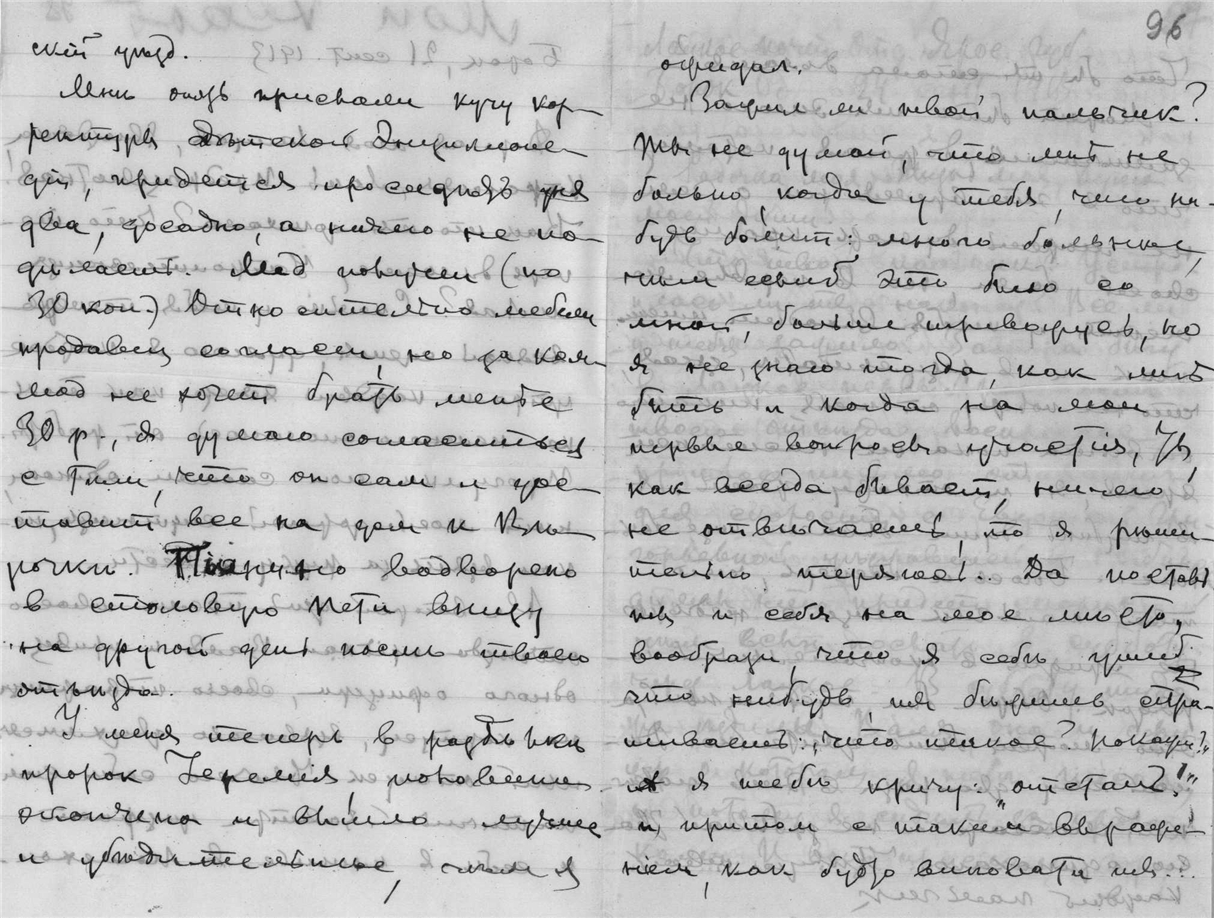 скій уѣзд.
Мнѣ опять прислали кучу кор-
ректуры Дѣтской Энциклопе-
діи, придется просидѣть дня
два, досадно, а ничего не по-
дѣлаешь. Мед получен (по
30 коп.) Относительно мебели
продавец согласен, но за ком-
мод не хочет брать менѣе
30 р., я думаю согласиться
с тѣм, что он сам и дос-
тавит все на дом к
рочки. Піанино водворено
в столовую Пети внизу
на другой день послѣ твоего
отъѣзда.
У меня теперь в раздѣлкѣ
пророк Іеремія, половина
окончена и вышло лучше
и убѣдительнѣе, чѣм я
96
ожидал.
Зажил ли твой пальчик?
Ты не думай, что мнѣ не
больно, когда у тебя, что ни-
будь болит: много больнѣе,
чѣм еслиб это было со
мной, больше тревожусь, но
я не знаю тогда, как мнѣ
быть и когда на мои
первые вопросы участія, ты,
как всегда бывает, ничего
не отвѣчаешь, то я рѣши-
тельно теряюсь.. Да поставь
ты и себя на мое мѣсто,
вообрази, что я себѣ ушиб
что нибудь, ты бѣжишь спра-
шиваешь: „что такое? покажи?"
а я тебѣ кричу: „отстань!"
и притом с таким выраже-
нiем, как будто виновата ты...